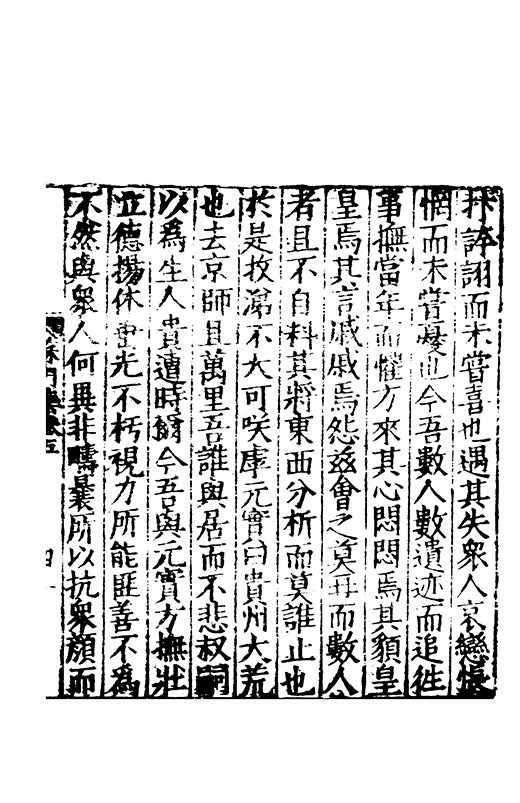 抃誶詡而未嘗喜也遇其失衆人哀戀悵
惘而未嘗憂也今吾數人數遺迹而追徃
事撫當年而懼方來其心悶悶焉其貌皇
皇焉其言戚戚焉怨兹會之莫再而數人
者且不自料其將東西分析而莫誰止也
於是放蕩不大可咲虖元實曰貴州大荒
也去京師且萬里吾誰與居而不悲叔嗣
以爲生人貴遭時爾今吾與元實方撫壯
立德揚休雷光不朽視力所能匪善不爲
不然與衆人何異非疇曩所以抗衆顔而
蘇門集卷五
四